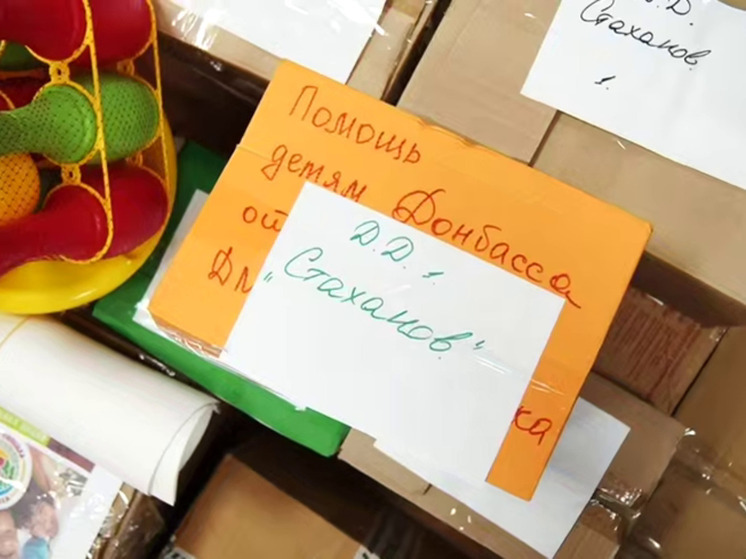 Д.
Стаханов
1.
Помощь
детям Донбасса
от
Дм
ка
Д.Д. 1.
"Стаханов"